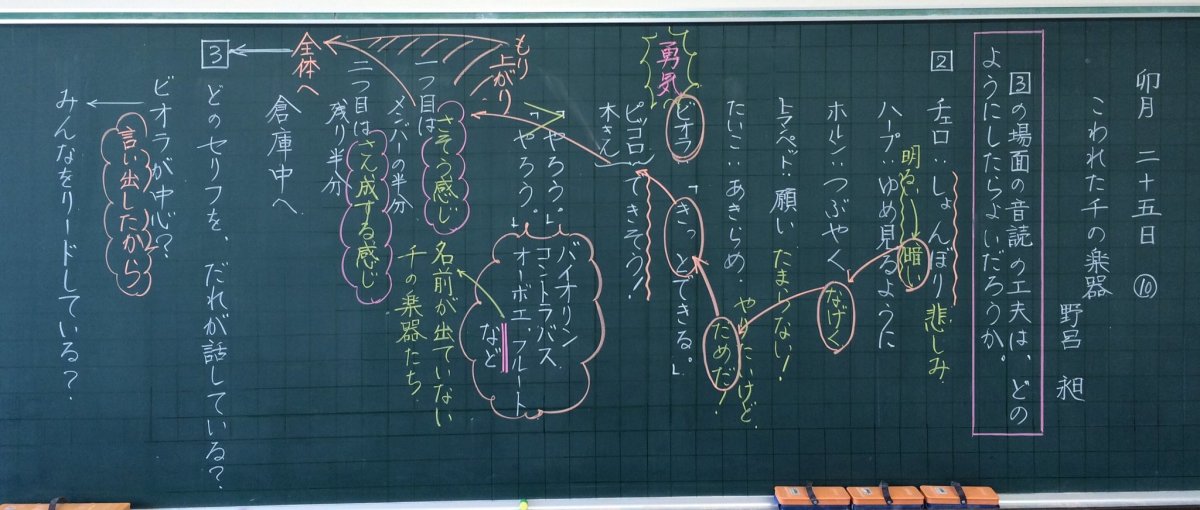 卯月 二十五日 ⑩
こわれた千の楽器
野呂 昶
3の場面の音読の工夫は、どの
ようにしたらよいだろうか。
2
チェロ‥しょんぼり 悲しみ
明るし→暗し
ハープ‥ゆめ見るように
ホルン‥つぶやく なげく
トランペット‥願い たまらない！
やりたいけど
たいこ‥あきらめ だめだ！
勇気
ビオラ 「きっとできる。」
ピッコロ
木きん
できそう！
「やろう。」
「やろう。」
バイオリン
コントラバス
オーボエ、フルート
など
もり
上がり
一つ目は さそう感じ
名前が出ていない
千の楽器たち
メンバーの半分
二つ目は さん成する感じ
残り半分
全体へ
倉庫中へ
3
どのセリフを、だれが話している？
ビオラが中心？
言い出したから
みんなをリードしている？